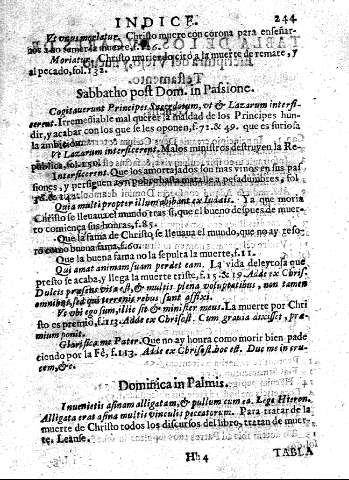 INDICE. 244
Vt non moriatur. Christo muere con corona para enseñar-
nos a no temer la muerte, f.
Moriatur. Christo muriendo cito a la muerte de remate, y
al pecado, fol. 132.
Sabbatho post Dom. in Passione.
Cogitauerunt Principes Sacerdotum, vt & Lazarum interfi-
cerent. Irremediable mal querer la maldad de los Principes hun-
dir, y acabar con los que se les oponen, f. 72. & 49. que es furiosa
la ambicion.
Vt Lazarum interficerent. Malos ministros destruyen la Re-
publica, fol.
Interficerent. Que los amortajados son mas viuos en sus pas
siones, y persiguen a matalla a pesadumbres, fol
Quia multi propter illum abibant ex Iudæis. Ya que moria
Christo se lleuaua el mundo tras si, que el bueno despues de muer-
to comiença sus honras, f. 85.
Que la fama de Christo se lleuaua el mundo, que no ay teso-
ro como buena fama, f. 60.
Que la buena fama no la sepulta la muerte, f. 11.
Qui amat animam suam perdet eam. La vida deleytosa que
presto se acaba, y llega la muerte triste, f. 15 & 19. Adde ex Chris.
Dulcis præsens vita est, & multis plena voluptatibus, non tamen
omnibus, sed qui terrenis rebus sunt affixi.
Vt vbi ego sum, illic sit & minister meus. La muerte por Chri
sto es premio, f. 113. Adde ex Chrisost. Cum gratia dixisset, præ-
mium ponit.
Glorifica me Pater. Que no ay honra como morir bien pade
ciendo por la Fè, f. 113. Adde ex Chrisost. hoc est. Duc me in cru-
cem, &c.
Dominica in Palmis.
Inuenietis asinam alligatam, & pullum cum ea. Lege Hieron.
Alligata erat asina multis vinculis peccatorum. Para tratar de la
muerte de Christo todos los discursos del libro, tratan de muer-
te, Leanse.
Hh 4 TABLA